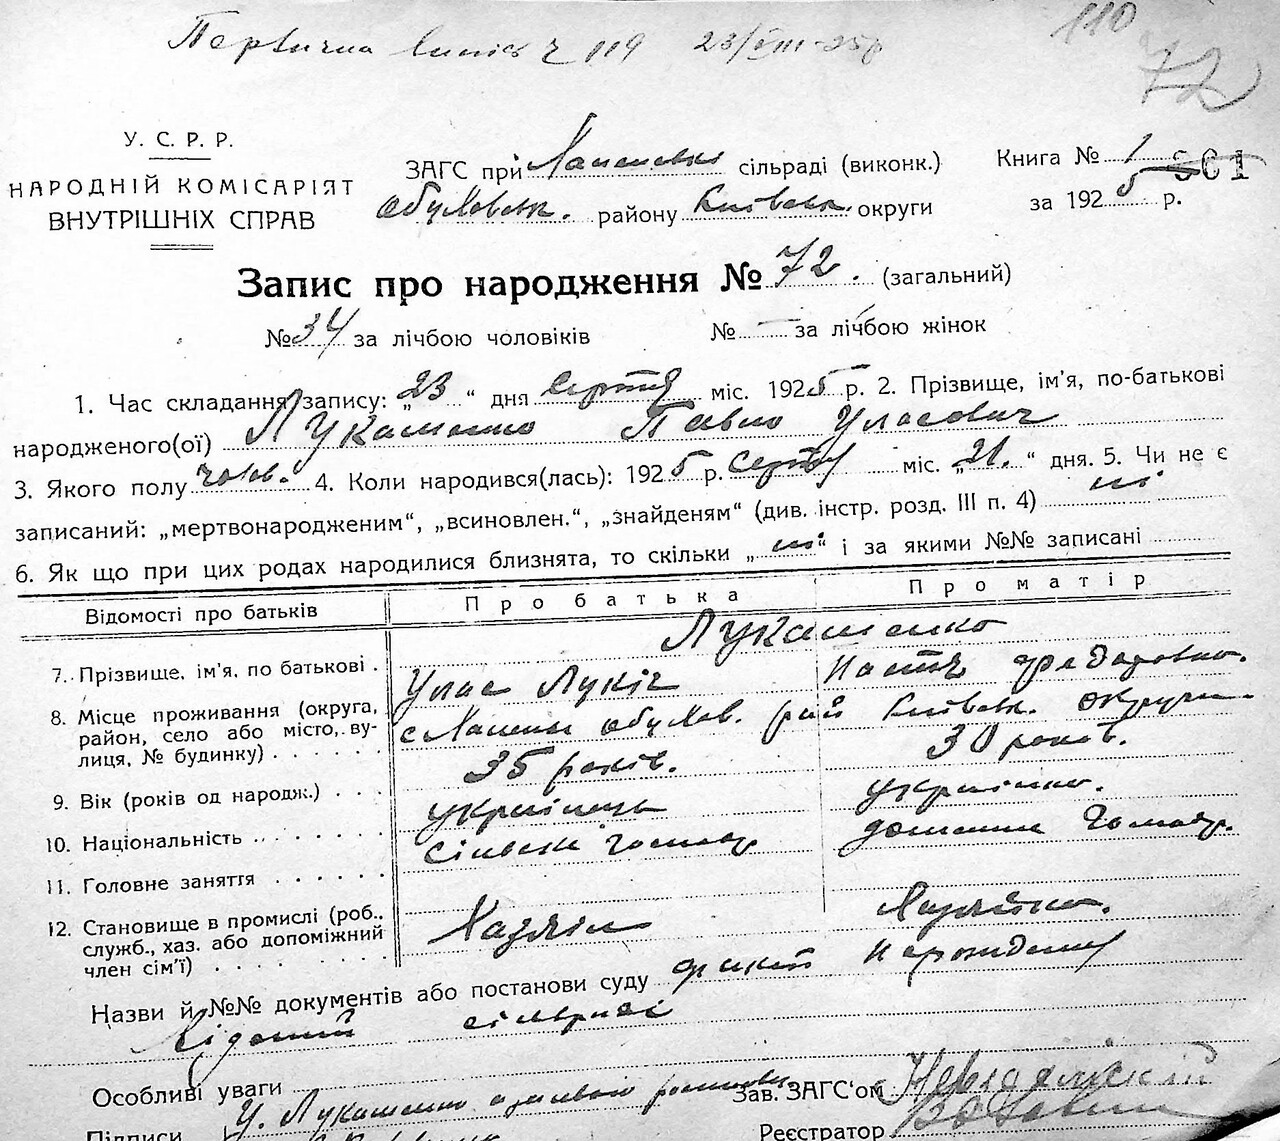 Первична випись ч 119 23/VIII-25р
110
72
У. С. Р. Р.
НАРОДНІЙ КОМІСАРІЯТ
ВНУТРІШНІХ СПРАВ
ЗАГС при сільраді (виконк.)
Обухівськ. району Київськ. округи
Книга № 1 361
за 1925 р.
Запис про народження № 72. (загальний)
№ 34 за лічбою чоловіків № — за лічбою жінок
1. Час складання запису: „23“ дня Серпня міс. 1925 р. 2. Прізвище, ім'я, по-батькові
народженого(ої) Лукашенко Павло Уласович
3. Якого полу чолов. 4. Коли народився(лась): 1925 р. Серпня міс. „21.“ дня. 5. Чи не є
записаний: „мертвонародженим“, „всиновлен.“, „знайденям“ (див. інстр. розд. III п. 4) ні
6. Як що при цих родах народилися близнята, то скільки „ні“ і за якими №№ записані
Відомості про батьків Про батька Про матір
Лукашенко
7. Прізвище, ім'я, по батькові . Улас Лукіч Настя Федоровна.
8. Місце проживання (округа, район, село або місто, вулиця, № будинку) . . . . . с обухов. рай Київськ. округи
9. Вік (років од народж.) . . . 35 років. 30 років.
10. Національність . . . . . . . українець українка.
11. Головне заняття . . . . . . сільське господар домашнє господар.
12. Становище в промислі (роб., служб., хаз. або допоміжний член сім'ї) . . . . . . . . Хазяїн Хазяйка.
Назви й №№ документів або постанови суду факт народження
відомий сільраді
Особливі уваги
Зав. ЗАГС'ом
Підписи У. Лукашенко
Реєстратор